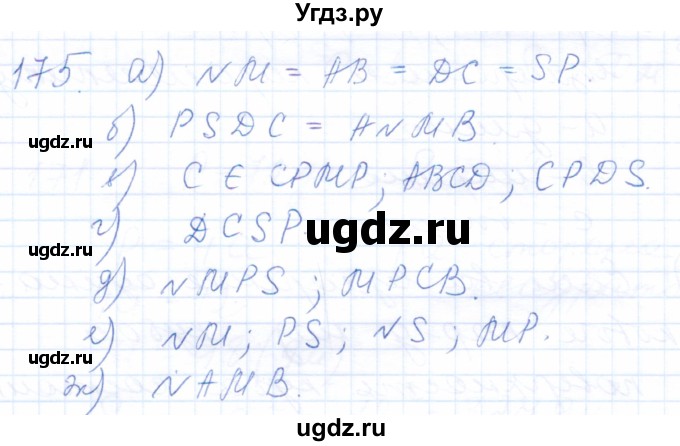 Угдз.ру
175. а) NM = AB = DC = SP.
ugdz.ru ugdz.ru
б) PSDC = ANMB.
в) C ∈ CPMP; ABCD; CPDS.
г) DCSP.
ugdz.ru
ugdz.ru
д) NMPS; MPCB.
е) NM; PS; NS; MP.
ugdz.ru ugdz.ru
ж) NAMB.